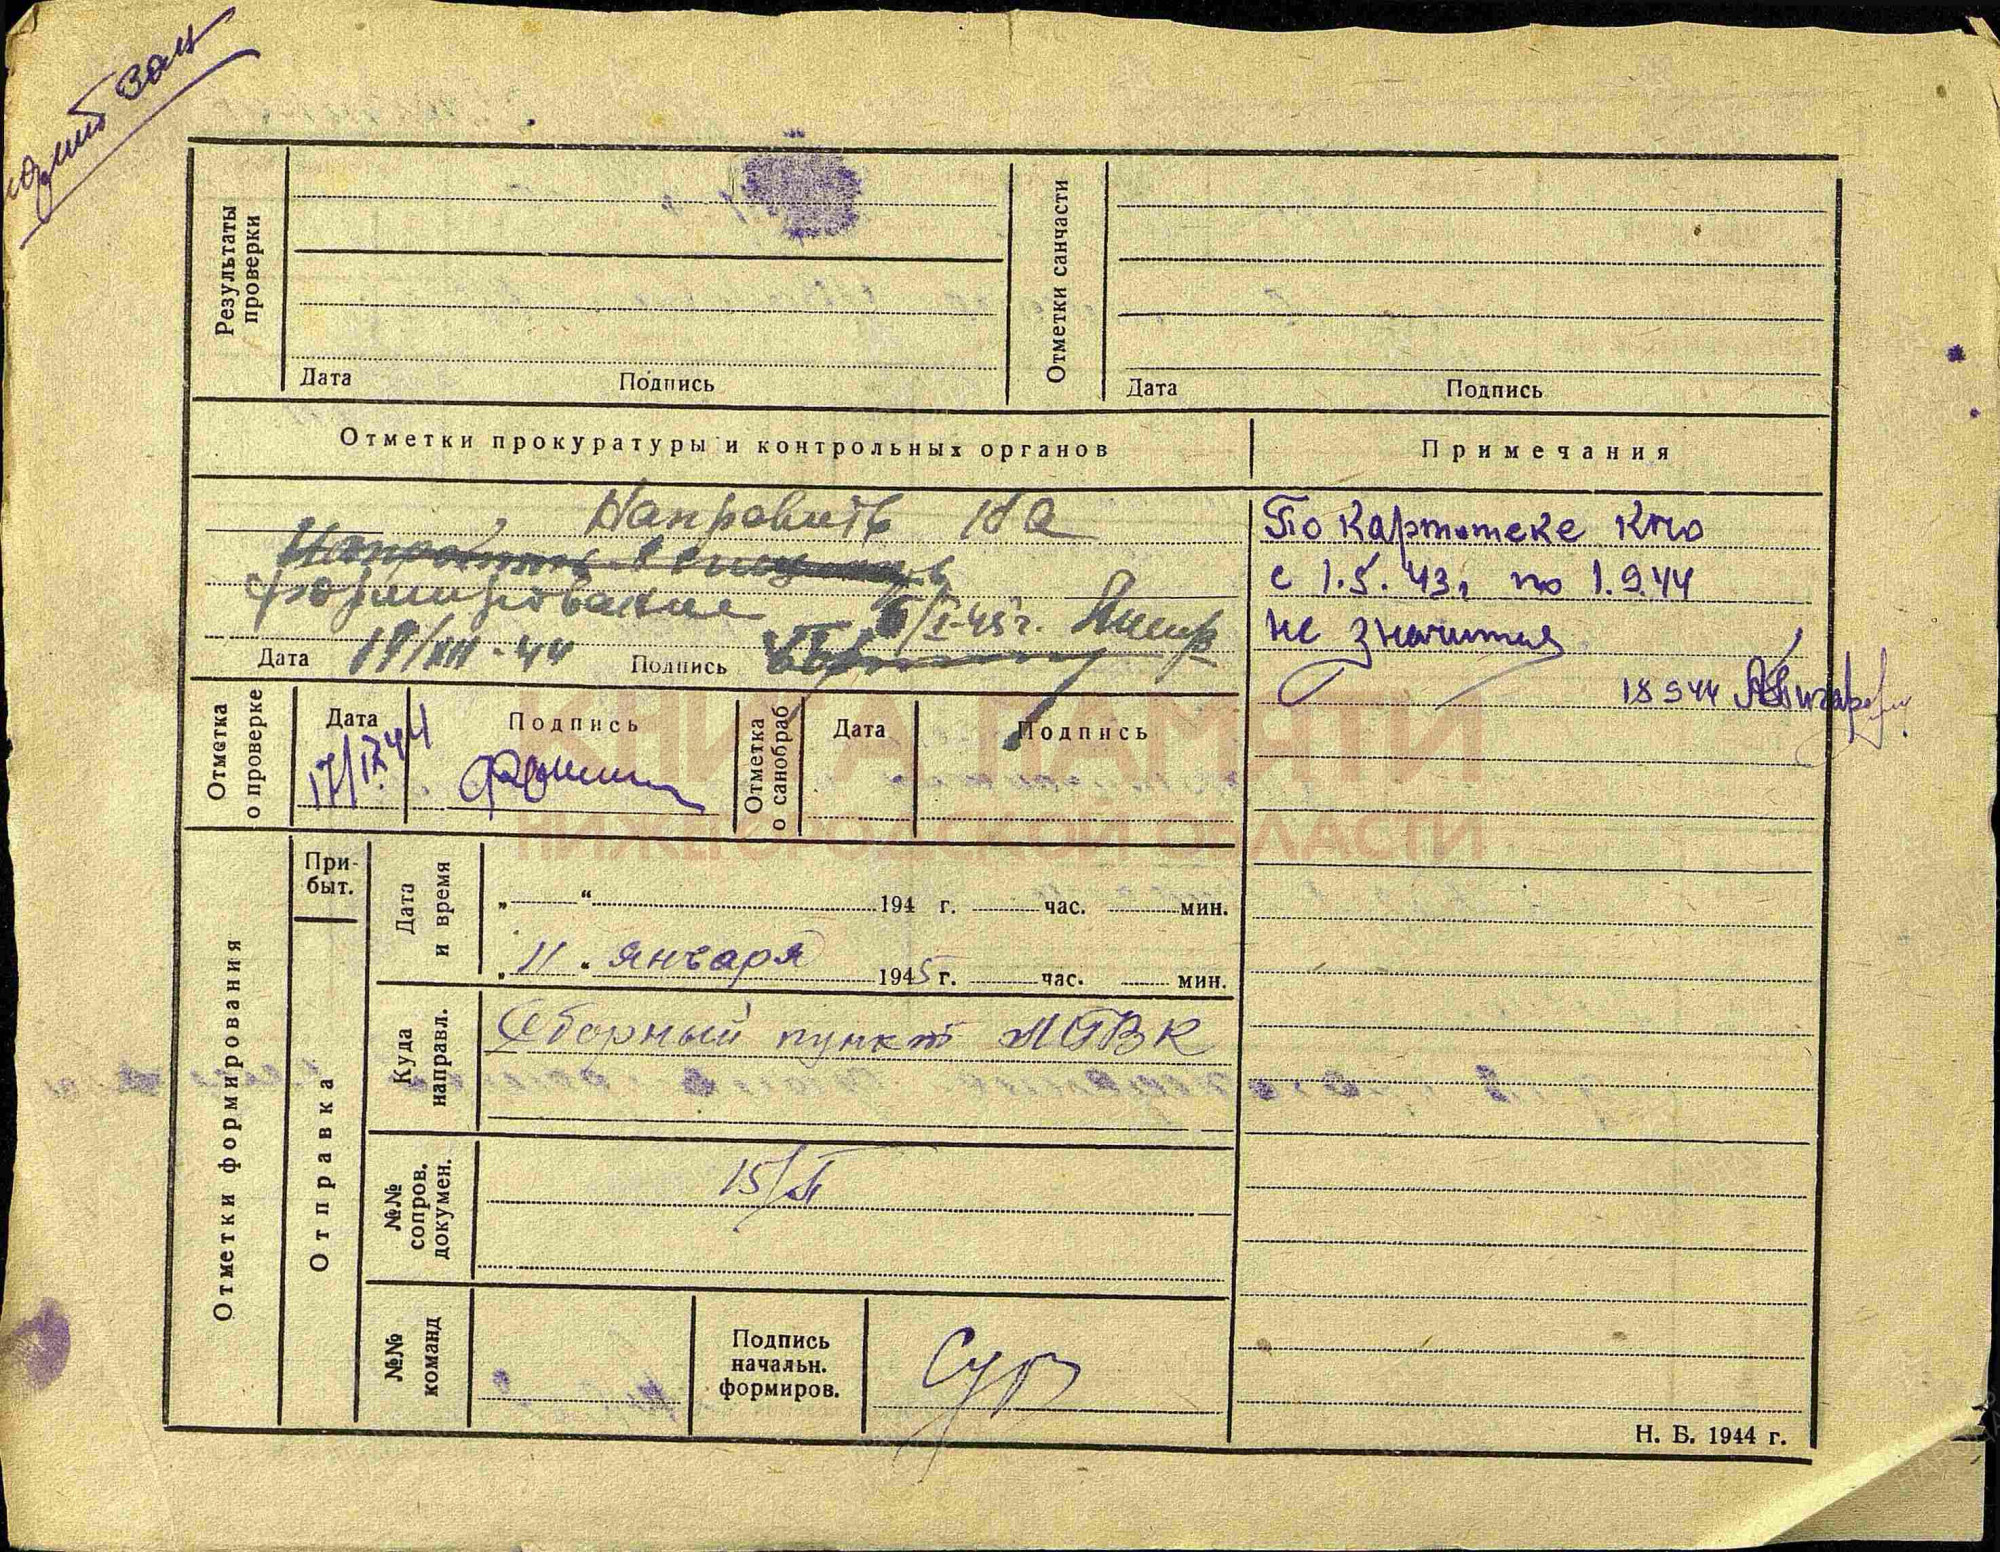 Результаты проверки
Дата Подпись
Отметки санчасти
Дата Подпись
Отметки прокуратуры и контрольных органов
Направить на
формирование
/I-45 г.
Дата 19/XII-44 Подпись
Примечания
По картотеке КПО
с 1.5.43, по 1.9.44
не значится
18 9 44
Отметка о проверке
Дата Подпись
17/IX 44
Отметка о санобраб
Дата Подпись
КНИГА ПАМЯТИ
НИЖЕГОРОДСКОЙ ОБЛАСТИ
Отметки формирования
При-
быт.
Отправка
Дата и время
„ “ 194 г. час. мин.
„ 11 “ января 1945 г. час. мин.
Куда направл.
Сборный пункт МГВК
№№ сопров. докумен.
15/П
№№ команд
Подпись
начальн.
формиров.
Н. Б. 1944 г.